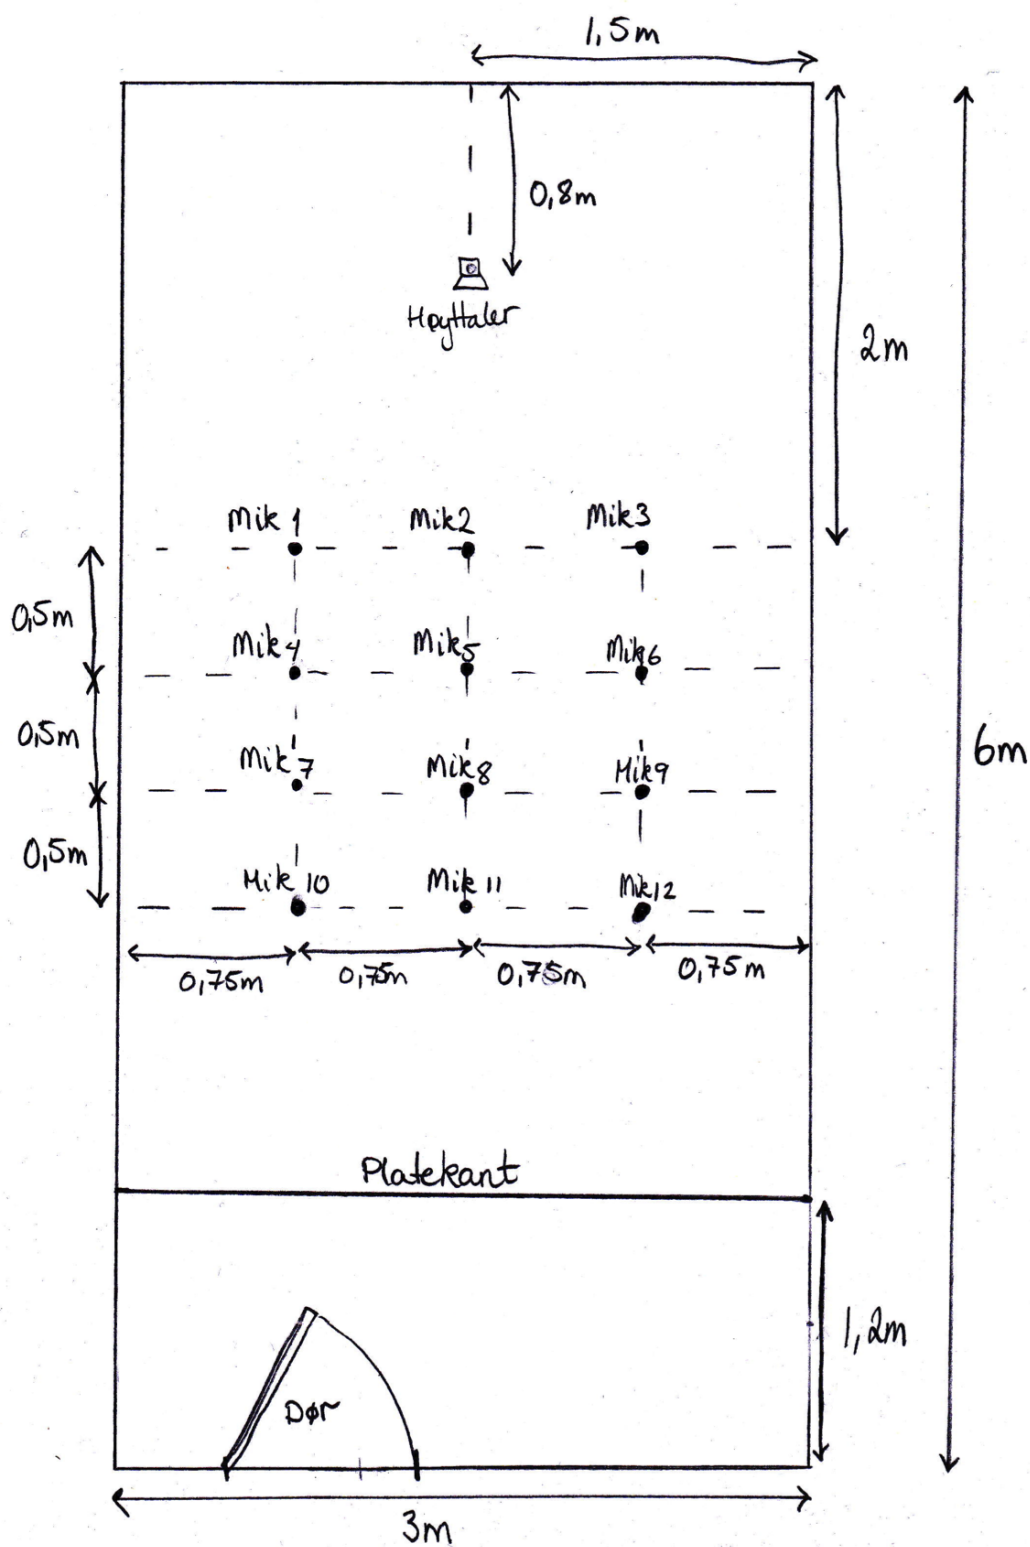 1,5m
0,8m
Høyttaler
2m
Mik 1 Mik2 Mik3
0,5m
Mik4 Mik5 Mik6
0,5m
6m
Mik7 Mik8 Mik9
0,5m
Mik 10 Mik 11 Mik12
0,75m 0,75m 0,75m 0,75m
Platekant
1,2m
Dør
3m